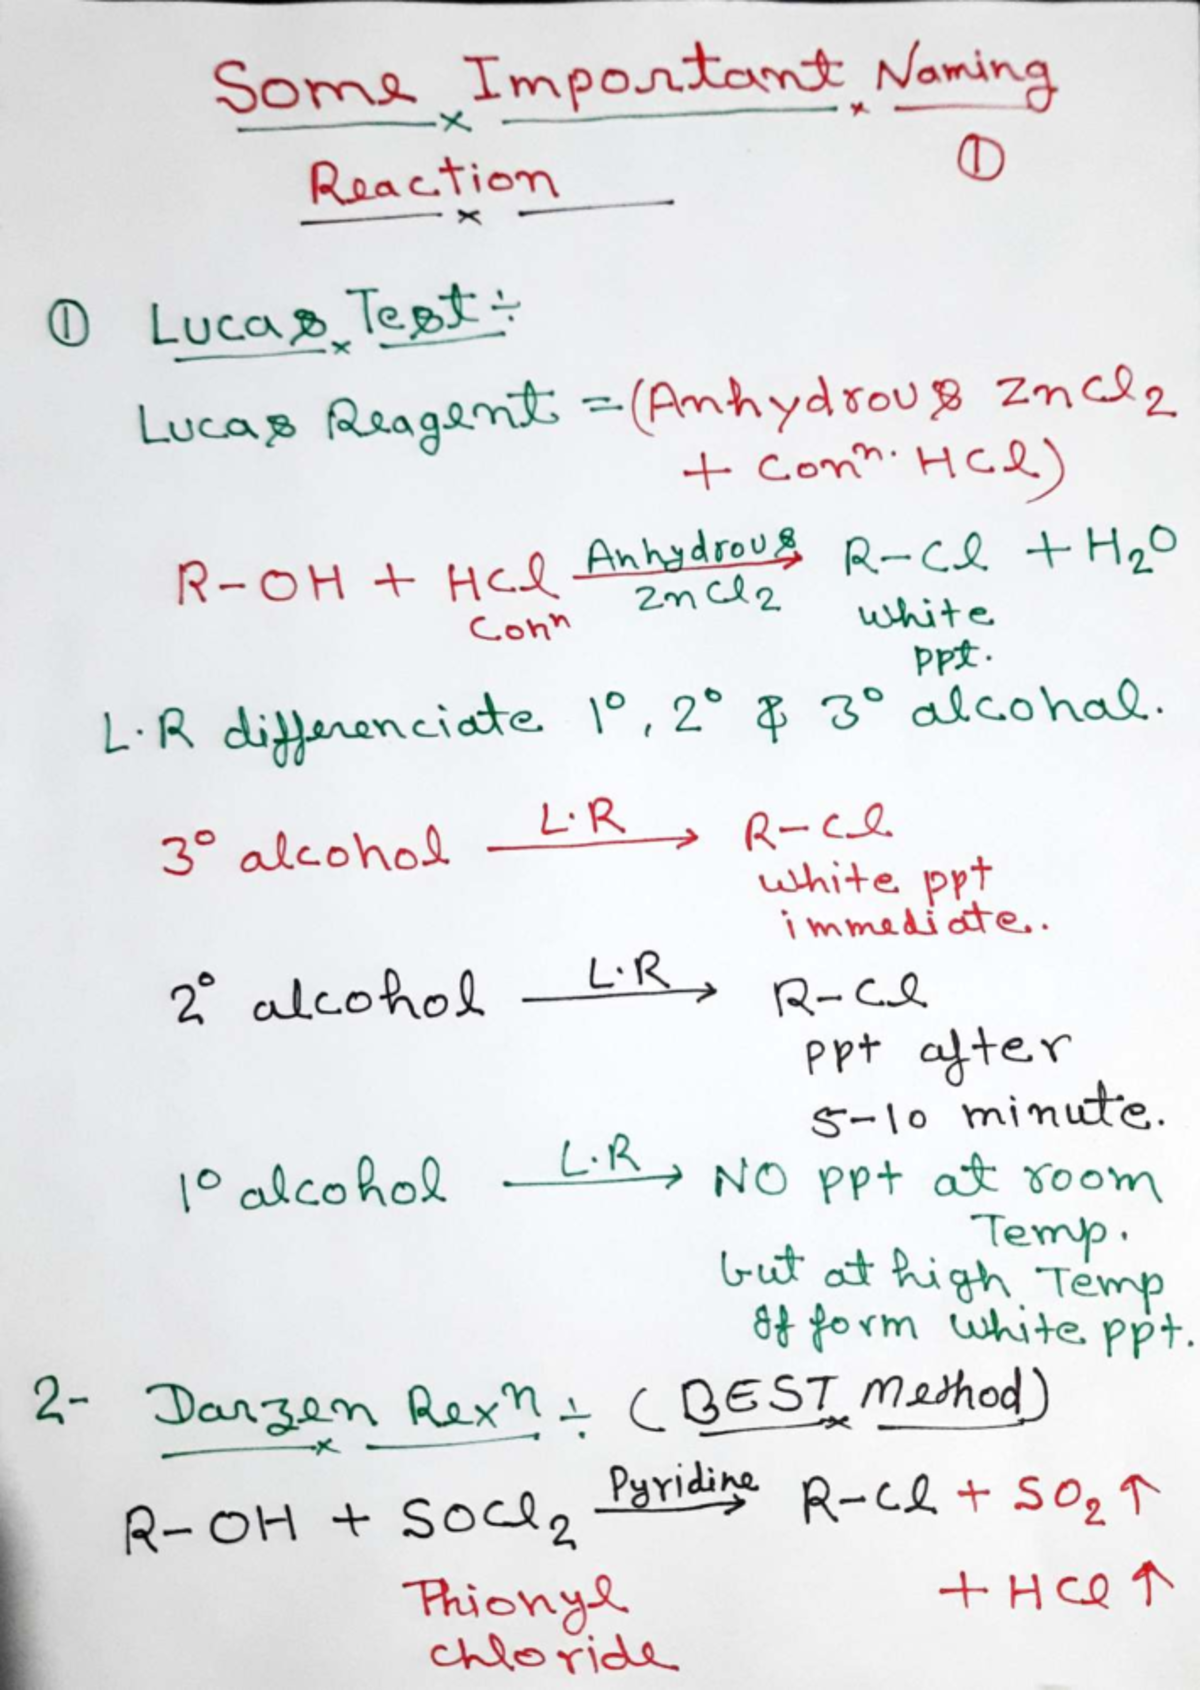 Some Important Naming
Reaction ①
① Lucas Test ÷
Lucas Reagent = (Anhydrous ZnCl2
+ Conⁿ. HCl)
R-OH + HCl Anhydrous R-Cl + H2O
Conⁿ ZnCl2 white
ppt.
L.R differenciate 1°, 2° & 3° alcohal.
3° alcohol L.R → R-Cl
white ppt
immediate..
2° alcohol L.R → R-Cl
ppt after
5-10 minute.
1° alcohol L.R → NO ppt at room
Temp.
but at high Temp
If form white ppt.
2- Darzen Rexⁿ ÷ (BEST Method)
R-OH + SOCl2 Pyridine → R-Cl + SO2 ↑
Thionyl + HCl ↑
chloride